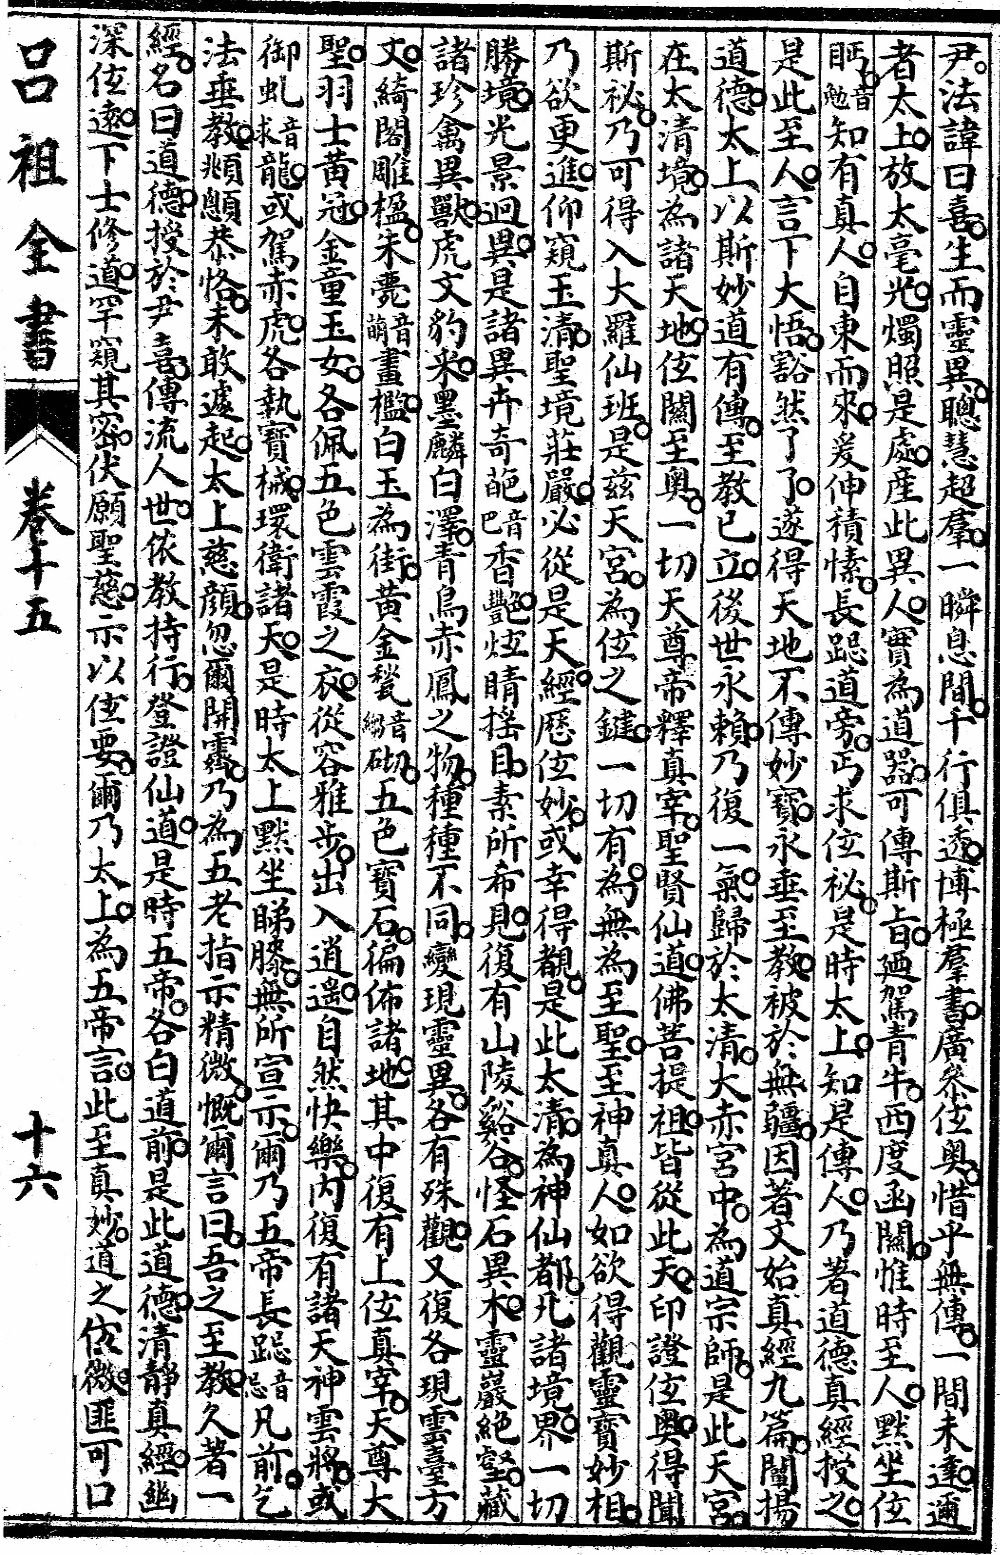 尹法諱曰喜生而靈異聰慧超羣一瞬息間千行俱透博極羣書廣叅㐌奥惜乎無傳一間未達邇
者太上放太毫光燭照是處産此異人實為道器可傳斯旨廼駕青牛西度函關惟時至人默坐㐌
眄音勉知有真人自東而來爰伸積愫長跽道旁丐求㐌祕是時太上知是傳人乃著道德真經授之
是此至人言下大悟豁然了了遂得天地不傳妙寶永垂至教被於無疆因著文始真經九篇闡揚
道德太上以斯妙道有傳至教已立後世永賴乃復一氣歸於太清大赤宮中為道宗師是此天宮
在太清境為諸天地㐌關至奥一切天尊帝釋真宰聖賢仙道佛菩提祖皆從此天印證㐌奥得聞
斯祕乃可得入大羅仙班是兹天宮為㐌之鍵一切有為無為至聖至神真人如欲得觀靈寶妙相
乃欲更進仰窺玉清聖境莊嚴必從是天經歷㐌妙或幸得覩是此太清為神仙都凡諸境界一切
勝境光景迥異是諸異卉奇葩音巴香艷炫睛揺目素所希見復有山陵谿谷怪石異木靈巖絶壑藏
諸珍禽異獸虎文豹采墨麟白澤青鳥赤鳳之物種種不同變現靈異各有殊觀又復各現雲臺方
文綺閣雕楹朱甍音萌畫檻白玉為街黄金甃音縐砌五色寶石徧佈諸地其中復有上㐌真宰天尊大
聖羽士黄冠金童玉女各佩五色雲霞之衣從容雅步出入逍遥自然快樂内復有諸天神雲將或
御虬音求龍或駕赤虎各執寶械環衛諸天是時太上默坐睇膝無所宣示爾乃五帝長跽音忌凡前乞
法垂教兆頫顒恭恪未敢遽起太上慈顔忽爾開霽乃為五老指示精微慨爾言曰吾之至教久著一
經名曰道德授於尹喜傳流人世依教持行登證仙道是時五帝各白道前是此道德清靜真經幽
深㐌遠下士修道罕窺其密伏願聖慈示以㐌要爾乃太上為五帝言此至真妙道之㐌微匪可口
吕祖全書 卷十五 十六